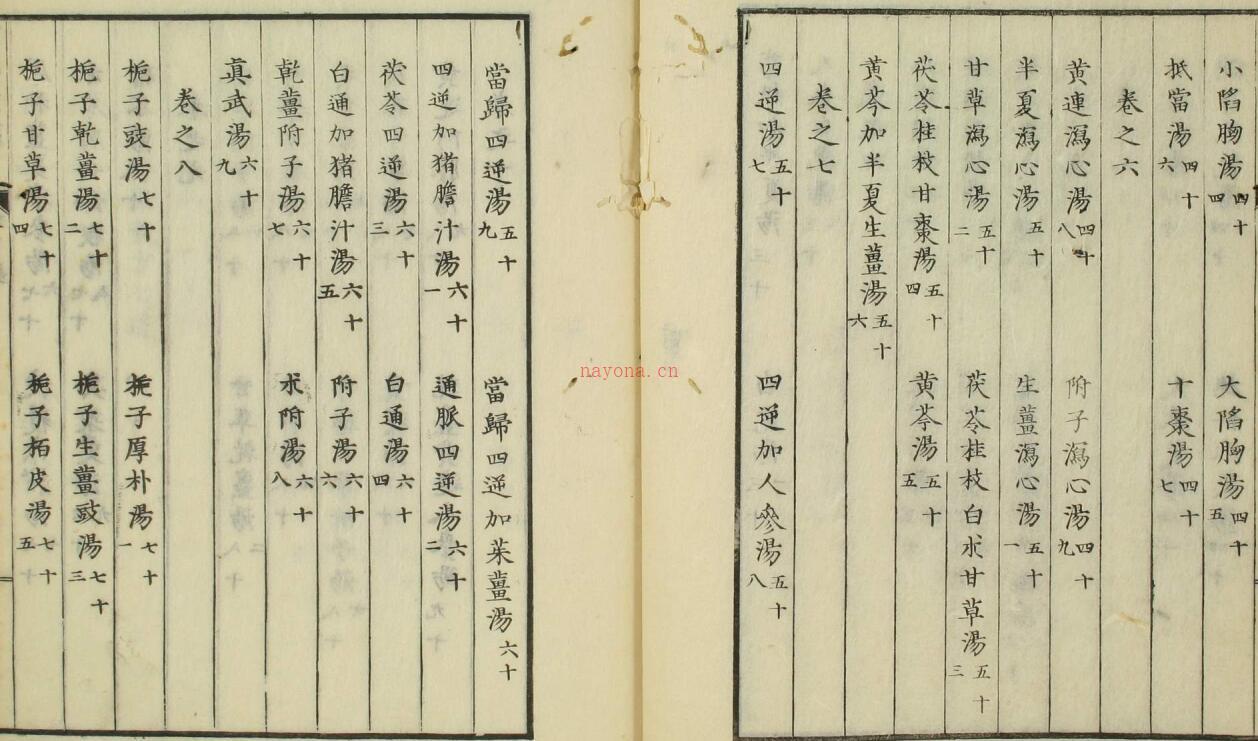 小陷胸湯四十四 大陷胸湯四十五
抵當湯四十六 十棗湯四十七
卷之六
黃連瀉心湯四十八 附子瀉心湯四十九
半夏瀉心湯五十 生薑瀉心湯五十一
甘草瀉心湯五十二 茯苓桂枝白朮甘草湯五十三
茯苓桂枝甘棗湯五十四 黃芩湯五十五
黃芩加半夏生薑湯五十六
卷之七
四逆湯五十七 四逆加人參湯五十八
當歸四逆湯五十九 當歸四逆加茱薑湯六十
四逆加猪膽汁湯六十一 通脈四逆湯六十二
茯苓四逆湯六十三 白通湯六十四
白通加猪膽汁湯六十五 附子湯六十六
乾薑附子湯六十七 朮附湯六十八
眞武湯六十九
卷之八
梔子豉湯七十 梔子厚朴湯七十一
梔子乾薑湯七十二 梔子生薑豉湯七十三
梔子甘草湯七十四 梔子栢皮湯七十五
nayona.cn